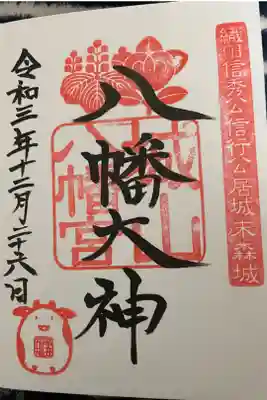 織田信秀公信行公居城 末森城
八幡大神
城山
八幡宮
令和三年十二月二十六日